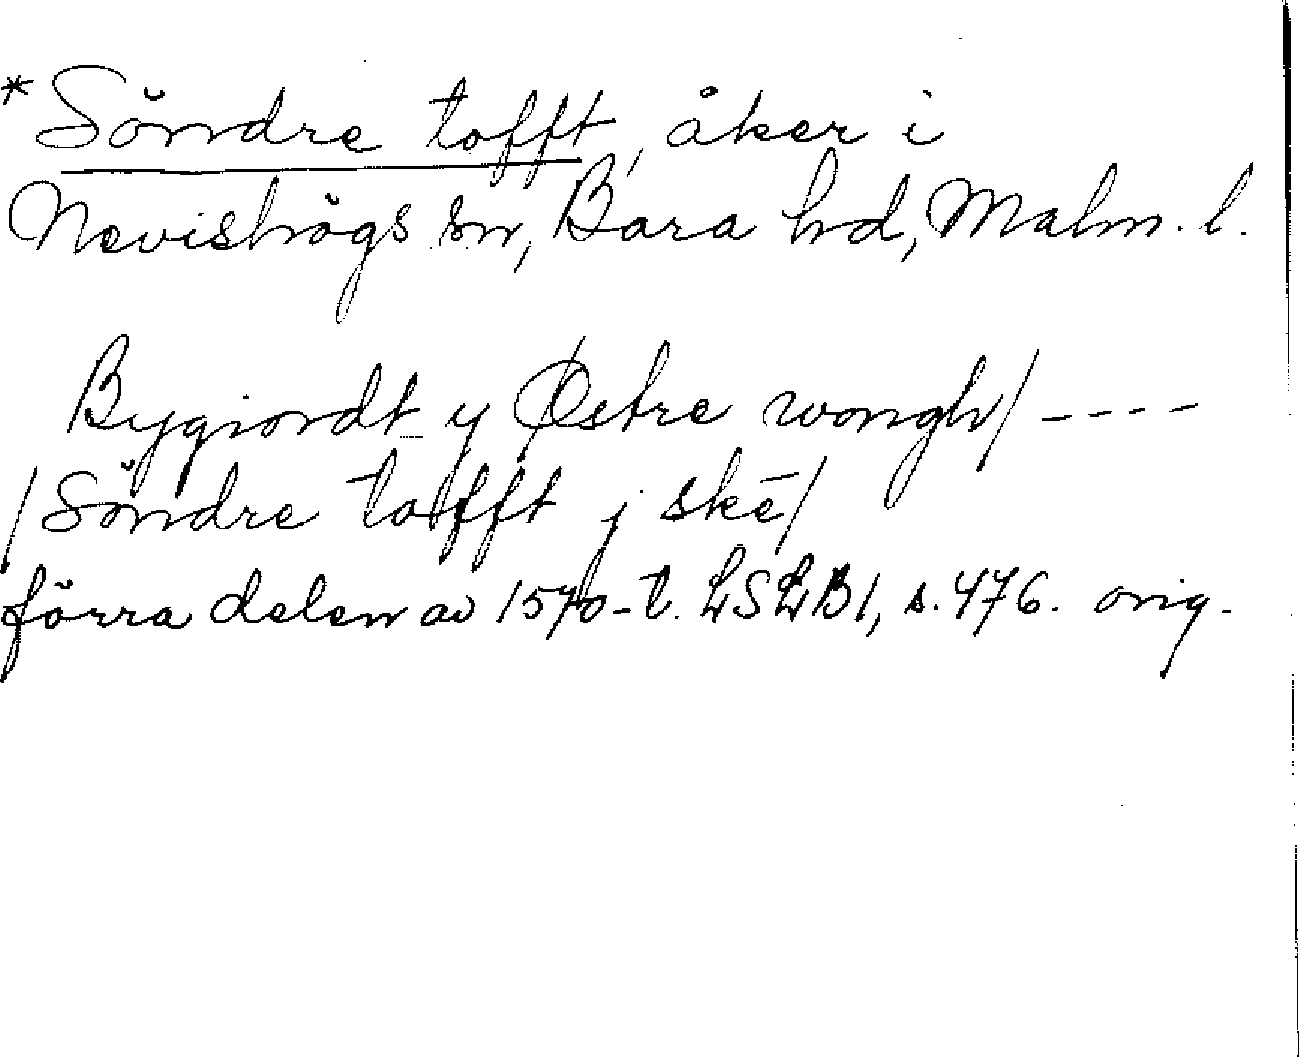 * Söndre tofft, åker i
Nevishögs sn, Bara hd, Malm. l.
Bygiordt y Østre wongh/ ----
/Söndre tofft j skē/
förra delen av 1570-t. LSLB1, s. 476. orig.